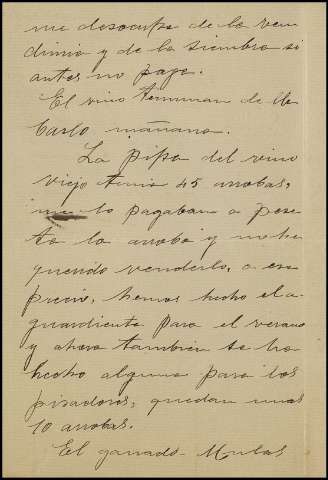 me desocupe de la ven
dimia y de la siembra si
antes no pago.
El vino terminan de lle
barlo mañana.
La pipa del vino
viejo tenia 45 arrobas,
me lo pagaban a pese
ta la arroba y no he
querido venderlo, a ese
precio, hemos hecho el a-
guardiente para el verano
y ahora tambien se ha
hecho alguno para los
pisadores, quedan unas
10 arrobas.
El ganado Mulas